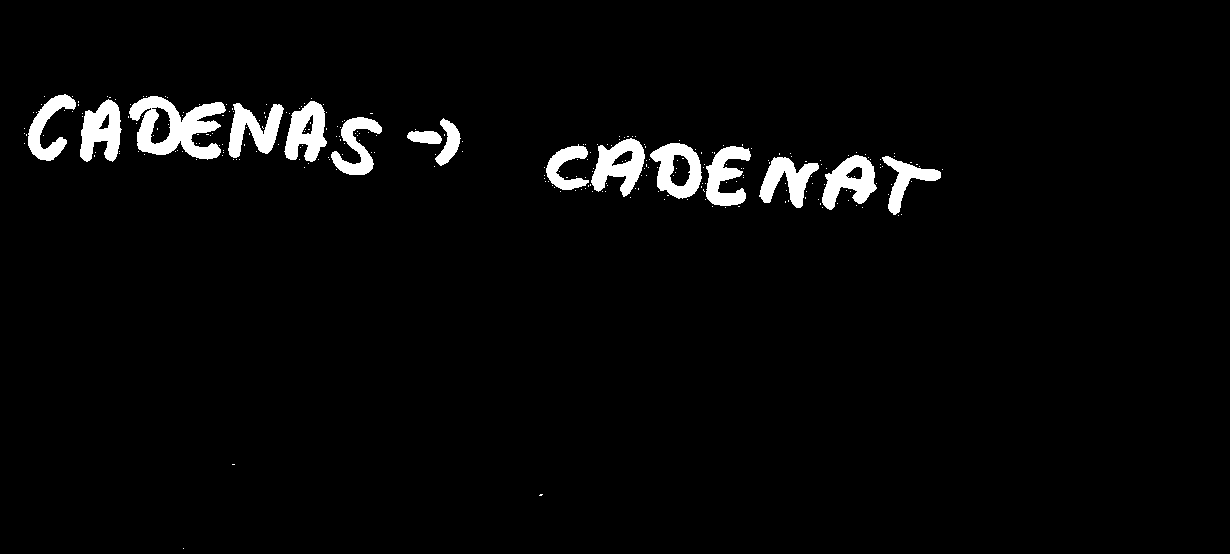 CADENAS → CADENAT